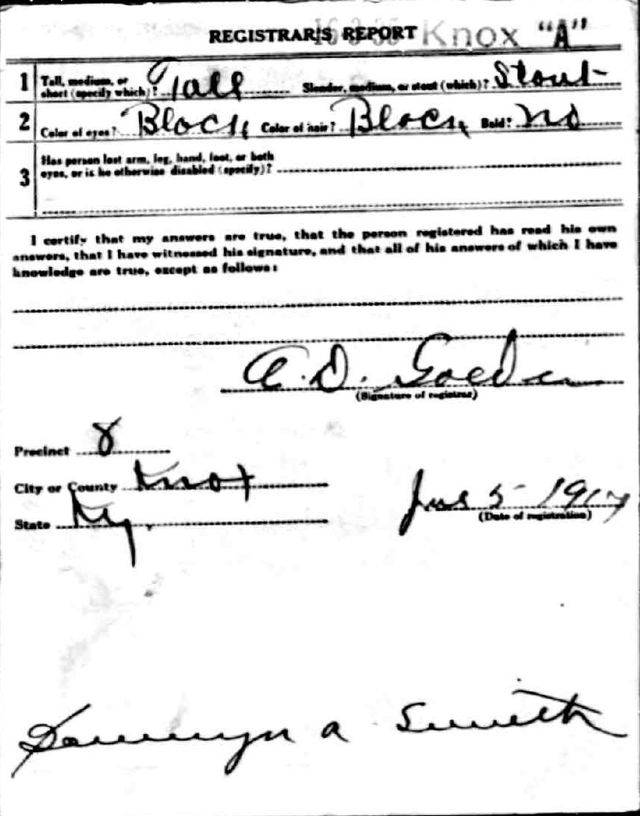 REGISTRAR'S REPORT 16-3-35 Knox "A"
1 Tall, medium, or short (specify which)? Tall Slender, medium, or stout (which)? Stout
2 Color of eyes? Black Color of hair? Black Bald? no
3 Has person lost arm, leg, hand, foot, or both eyes, or is he otherwise disabled (specify)?
I certify that my answers are true, that the person registered has read his own
answers, that I have witnessed his signature, and that all of his answers of which I have
knowledge are true, except as follows:
A. D.
(Signature of registrar)
Precinct 8
City or County Knox
State Ky.
June 5 - 1917
(Date of registration)
A Smith